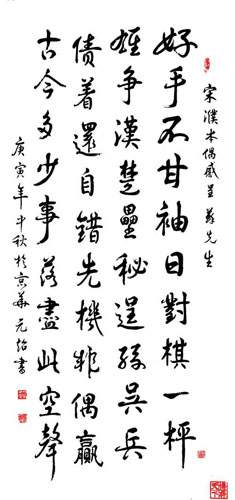 宋濮本偶感呈先生
好手不甘袖日對棋一枰
雄爭漢楚壘秘逞孫吳兵
債着還自錯先機非偶贏
古今多少事落盡此空聲
庚寅年中秋於京華元怡書